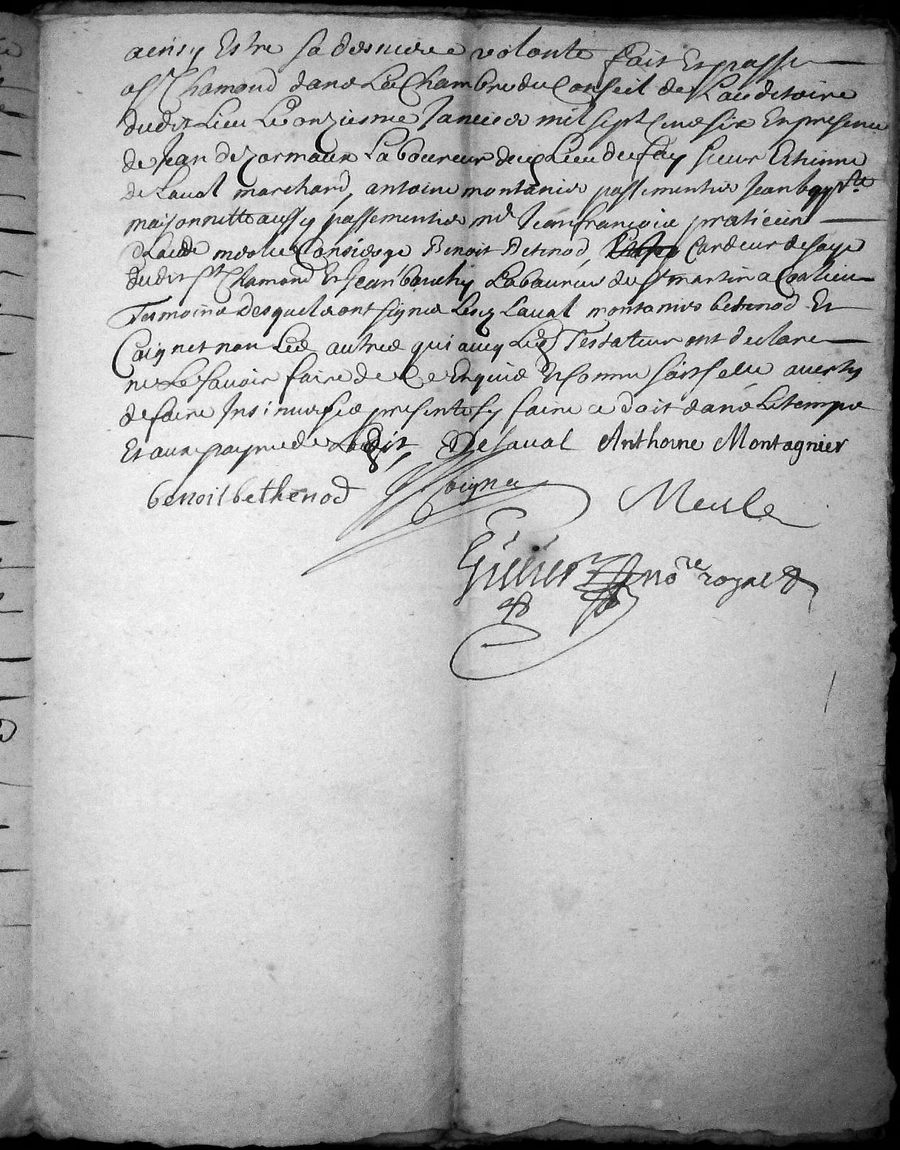 ainsy Estre sa derniere volonte fait Et passe
a St Chamond dans La Chambre du Conseil de Lauditoire
dudit Lieu Le onziesme Janvier mil sept cens six En presence
de Jean Laboureur du Lieu du fay sieur Ethienne
de Laval marchand, antoine montanier passementier Jean bapte
maisonnette aussy passementier me Jean françois praticien
Claude merle Consierge Benoit Betenod, Cardeur de soye
dudit St Chamond Et Jean Laboureur de St martin a Coalieu
Tesmoins desquels ont signe Lesd Laval montanier betenod Et
Coignet non Les autres qui avec Led Testateur ont declare
ne Le savoir faire de ce Enquis Et somme sauf elle averty
de faire Insinuer Les presentes sy faire ce doit dans Le temps
Et aux paynes de Ledit, DeLaval Anthoine Montagnier
benoit bethenod Coignet Merle
Gillier nore royal